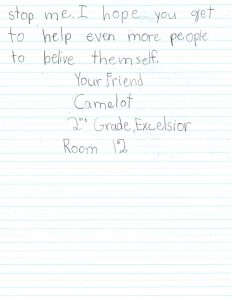 stop me. I hope you get
to help even more people
to belive themself.
Your Friend
Camelot
2nd Grade, Excelsior
Room 12